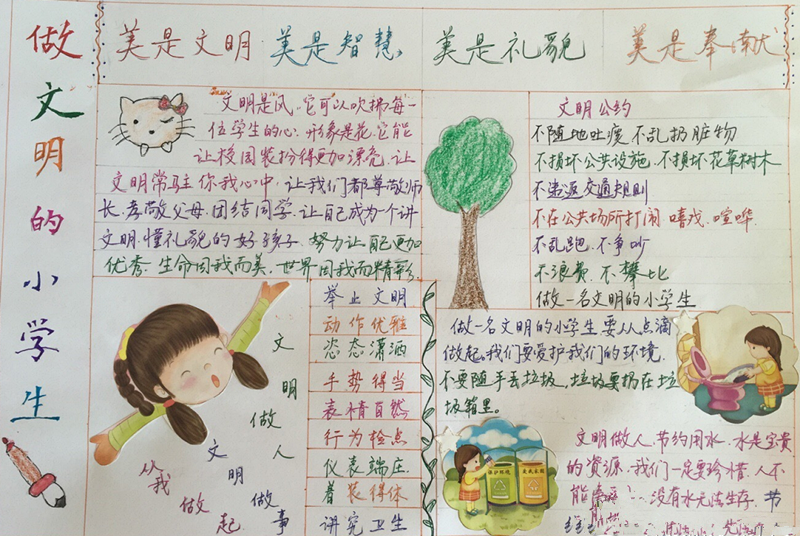 做文明的小学生
美是文明 美是智慧 美是礼貌 美是奉献
文明是风.它可以吹拂每一
位学生的心.形象是花.它能
让校园装扮得更加漂亮.让
文明常驻你我心中,让我们都尊敬师
长.孝敬父母.团结同学.让自己成为一个讲
文明.懂礼貌的好孩子.努力让自己更加
优秀.生命因我而美.世界因我而精彩
文明公约
不随地吐痰 不乱扔脏物
不损坏公共设施.不损坏花草树木
不违返交通规则
不在公共场所打闹 嘻戏.喧哗
不乱跑.不争吵
不浪费.不攀比
做一名文明的小学生
文明做人
文明做事
从我做起
举止文明
动作优雅
恣态潇洒
手势得当
表情自然
行为检点
仪表端庄
着装得体
讲究卫生
做一名文明的小学生要从点滴
做起,我们要爱护我们的环境.
不要随手丢垃圾.垃圾要扔在垃
圾箱里。
文明做人.节约用水.水是宝贵
的资源.我们一定要珍惜.人不
能 没有水无法生存.节